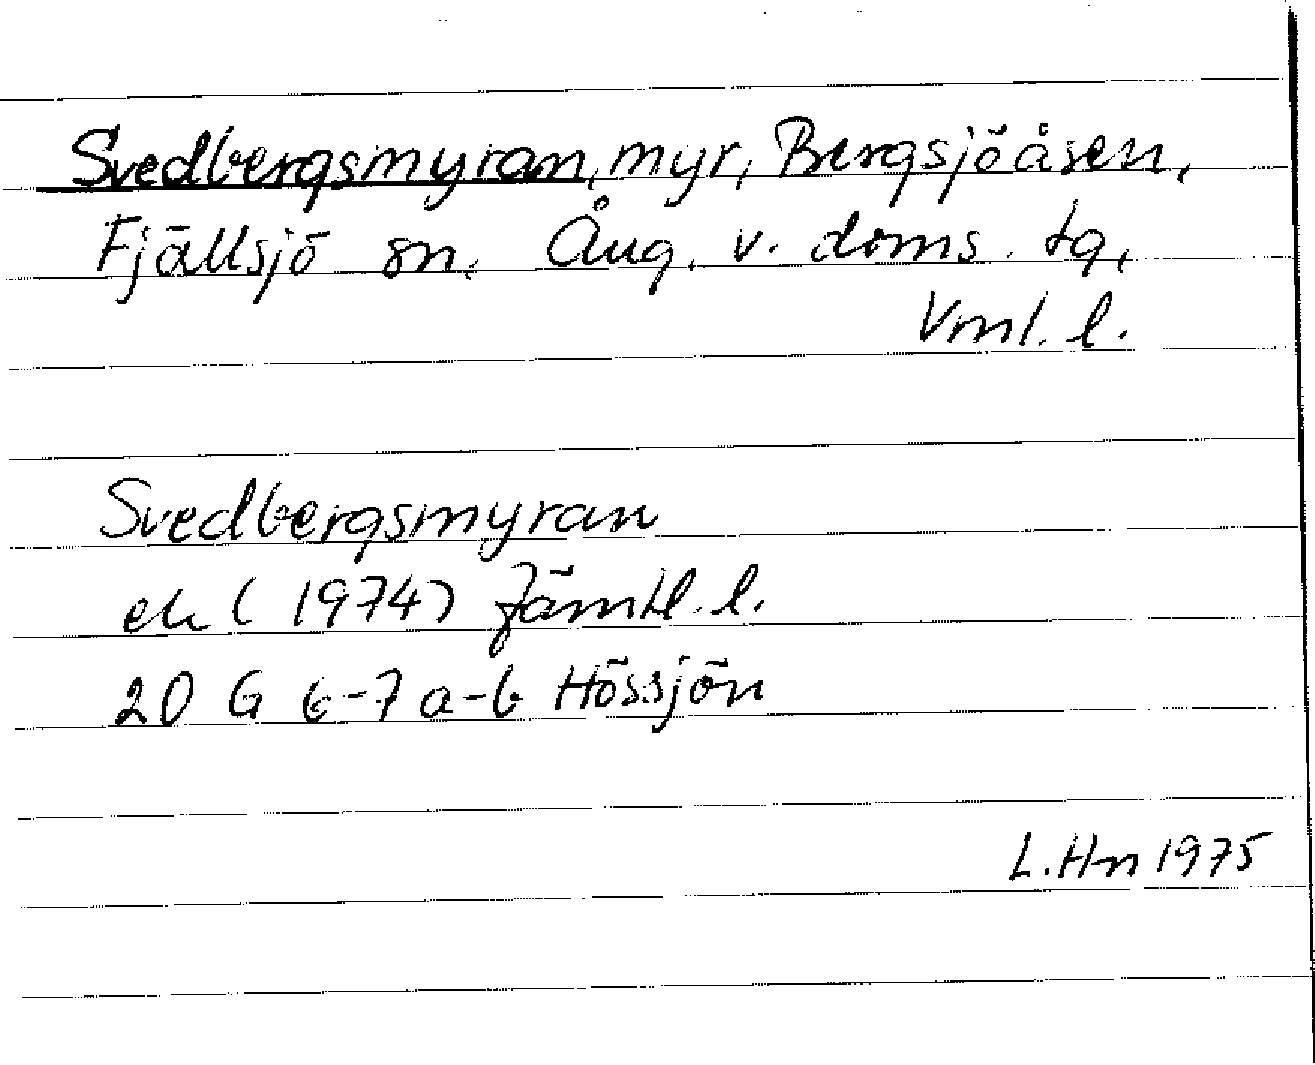 Svedbergsmyran, myr, Bergsjöåsen,
Fjällsjö sn, Ång. v. doms. tg,
Vml. l.
Svedbergsmyran
ek (1974) Jämtl. l.
20 G 6-7 a-b Hössjön
L. Hn 1975